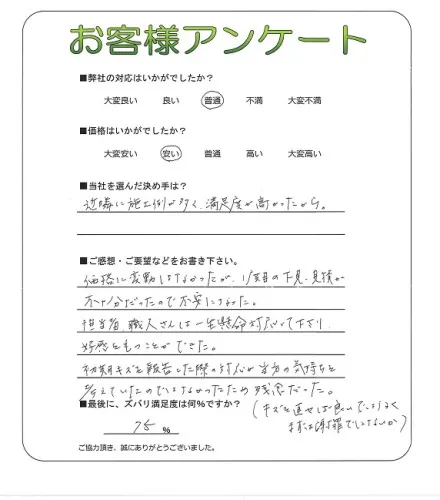 お客様アンケート
■弊社の対応はいかがでしたか？
大変良い 良い 普通 不満 大変不満
■価格はいかがでしたか？
大変安い 安い 普通 高い 大変高い
■当社を選んだ決め手は？
近隣に施工例が多く、満足度が高かったから。
■ご感想・ご要望などをお書き下さい。
価格に変動はなかったが、1回目の下見、見積が
不十分だったので不安になった。
担当者、職人さんは一生懸命対応して下さり
好感をもつことができた。
初期キズを報告した際の対応が当方の気持ちを
考えていたのではなかったため残念だった。
■最後に、ズバリ満足度は何%ですか？
(キズを直せば良いではなく
まずは謝罪でしょうないか)
75 %
ご協力頂き、誠にありがとうございました。